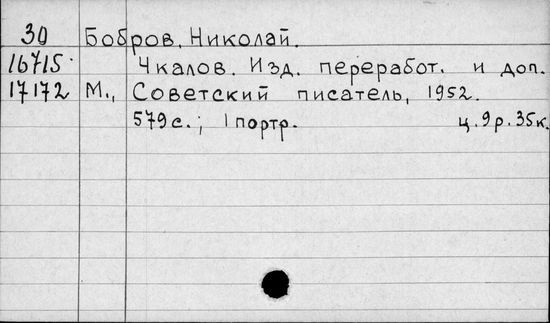 30 Бобров, Николай.
16715· Чкалов. Изд. переработ. и доп.
17172 М., Советский писатель, 1952.
579с.; 1 портр. ц. 9р. 35к.